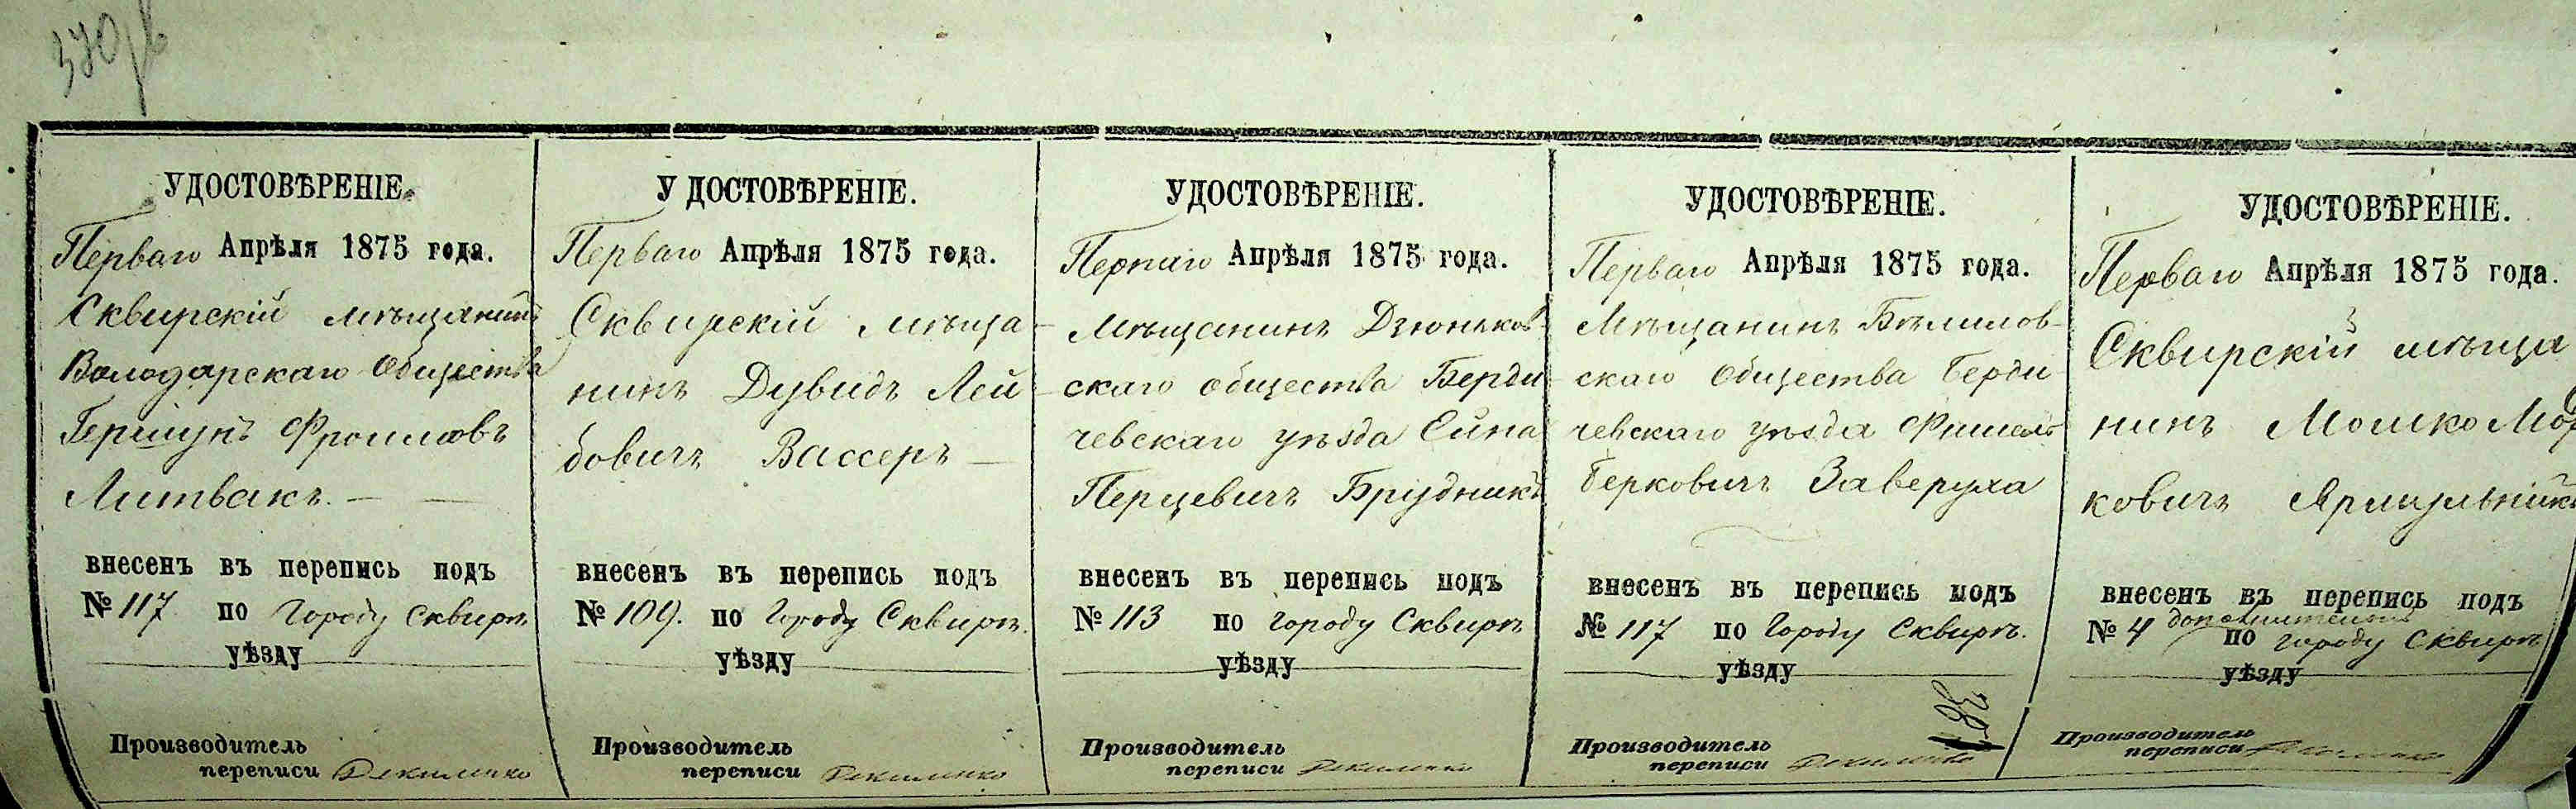 УДОСТОВѢРЕНІЕ.
Перваго Апрѣля 1875 года.
Сквирскій мѣщанинъ
Володарскаго Общества
Гершунъ Фроимовъ
Литвакъ. — —
внесенъ въ перепись подъ
№ 117 по Городу Сквирѣ
уѣзду
Производитель
переписи
У ДОСТОВѢРЕНІЕ.
Перваго Апрѣля 1875 года.
Сквирскій мѣща-
нинъ Дувидъ Лей-
бовичъ Вассеръ —
внесенъ въ перепись подъ
№ 109. по Городу Сквирѣ.
уѣзду
Производитель
переписи
УДОСТОВѢРЕНІЕ.
Перваго Апрѣля 1875 года.
Мѣщанинъ Дзюньков-
скаго общества Берди-
чевскаго уѣзда
Перцевичъ Брудникъ
внесенъ въ перепись подъ
№ 113 по городу Сквирѣ
уѣзду
Производитель
переписи
УДОСТОВѢРЕНІЕ.
Перваго Апрѣля 1875 года.
Мѣщанинъ Бѣлилов-
скаго Общества Берди-
чевскаго уѣзда Фишель
Берковичъ Заверуха
внесенъ въ перепись подъ
№ 117 по Городу Сквирѣ.
уѣзду
Производитель
переписи
УДОСТОВѢРЕНІЕ.
Перваго Апрѣля 1875 года.
Сквирскій мѣща
нинъ Мошко Мор
ковичъ
внесенъ въ перепись подъ
дополнительно
№ 4 по городу Сквирѣ
уѣзду
Производитель
переписи